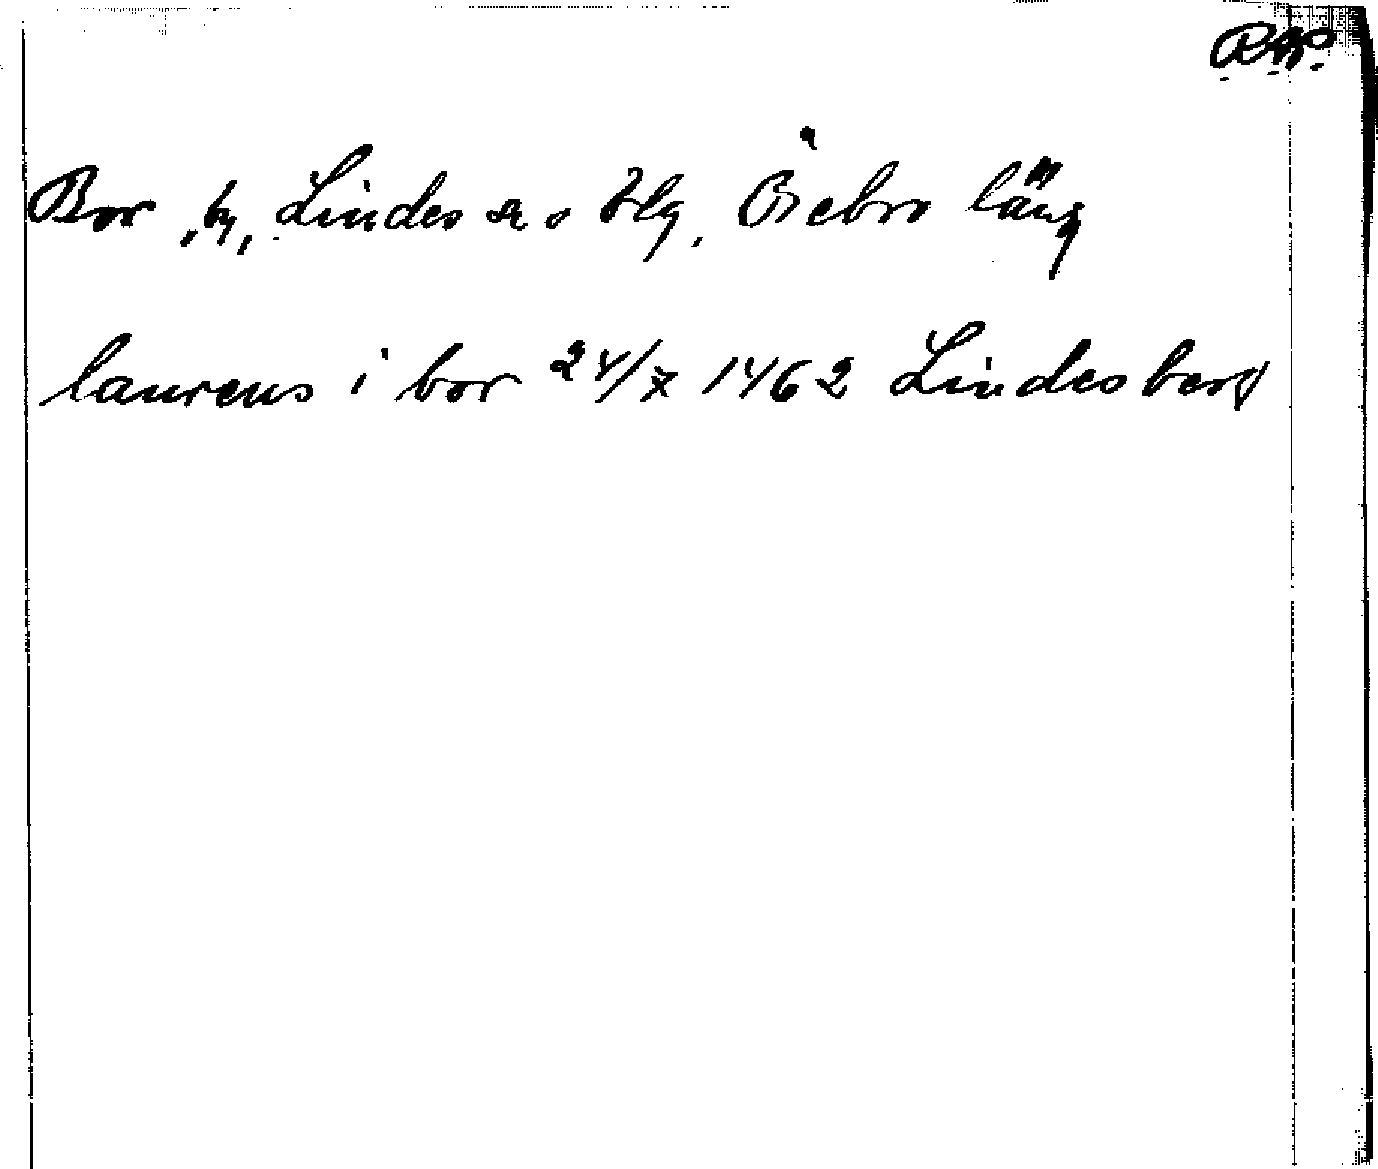 Bor, by, Lindes sn o blg, Örebro län
laurens i bor 24/7 1462 Lindesberg